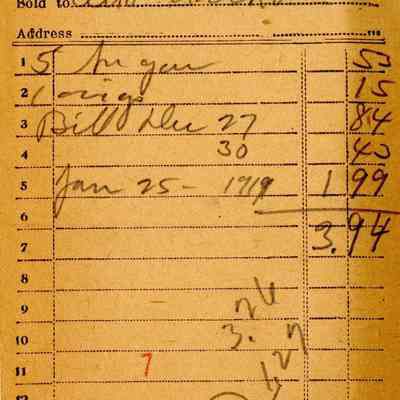 Sold to
Address
1 5 Sugar 53
2 15
3 Bill Dec 27 84
4 30 43
5 Jan 25 - 1919 1 99
6
7 3.94
8
9
10 3.
11 7
12